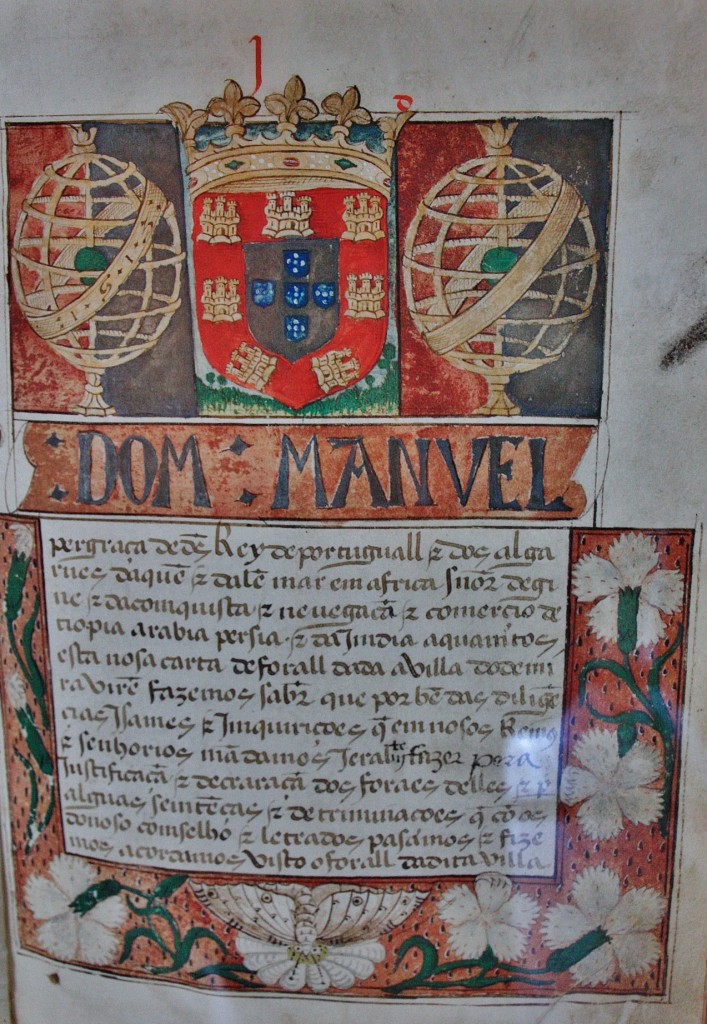 DOM MANVEL
per graça de ds Rey de portuguall & dos algar
ues daquē & dalē mar em africa snõr de gui
ne & da comquista & neuegacã & comercio de
tiopia arabia persia & da Imdia a quamtos
esta nosa carta de forall dada a villa dodemi
ra virē fazemos sabr que por bē das diligē
cias Isames & Imquirições q̃ em nosos Reinos
& senhorios mãdamos Jeralmẽte fazer pera
Justificacã & decraracã dos foraes delles & p
algũas seintẽcas & detriminacoes q̃ cõ os
do noso comselho & letrados pasamos & fize
mos acordamos visto o forall da dita villa